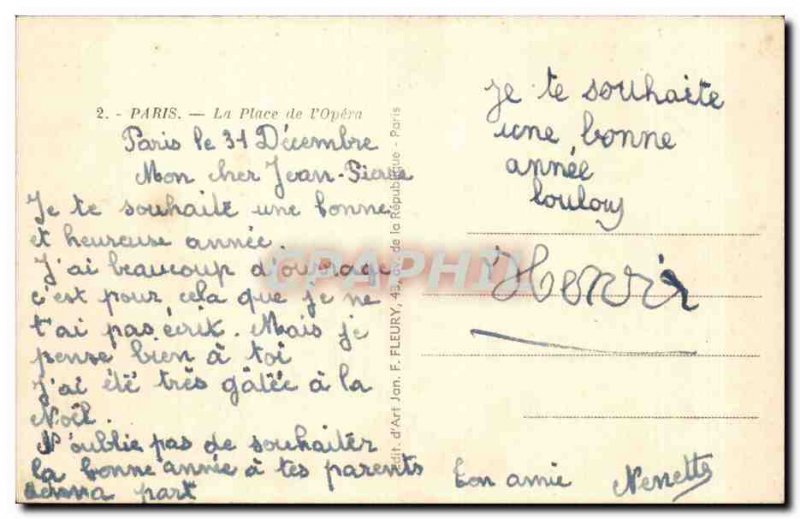 2. - PARIS. — La Place de l'Opéra
Paris le 31 Décembre
Mon cher Jean-Pierre
Je te souhaite une bonne
et heureuse année.
J'ai beaucoup d'ouvrage
c'est pour cela que je ne
t'ai pas écrit. Mais je
pense bien à toi
J'ai été très gâtée à la
Noël.
N'oublie pas de souhaiter
la bonne année à tes parents
de ma part
Ton amie Nenette
Edit. d'Art Jan. F. FLEURY, 43, av. de la République - Paris
je te souhaite
une bonne
année
loulou
Henri
CPAPHIL